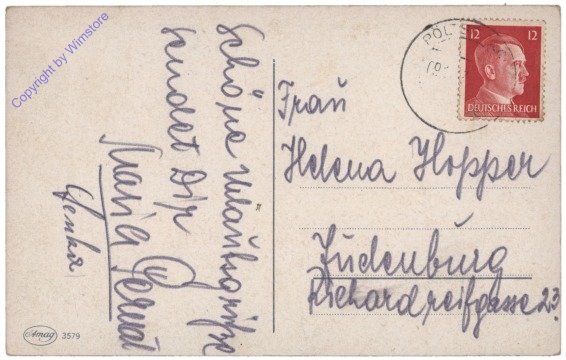 Schöne Urlaubsgrüße
sendet Dir
Maria
PÖLS
12 12
DEUTSCHES REICH
Frau
Helena Hopper
Judenburg
23
Amag 3579
Copyright by Wimstore